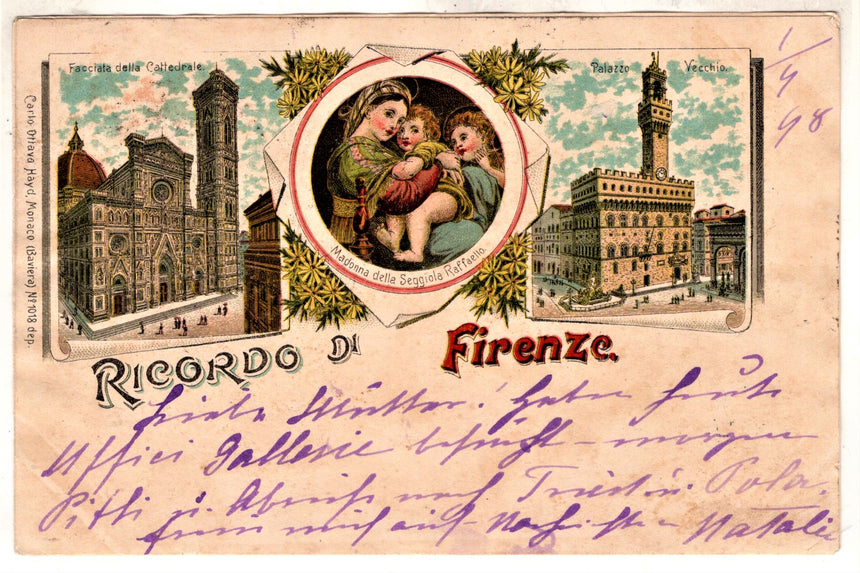 Facciata della Cattedrale.
Palazzo Vecchio.
1/4 98
Carlo Ottava Hayd, Monaco (Baviera) No 1018 dep.
Madonna della Seggiola Raffaello.
RICORDO DI Firenze.
Liebe Mutter! Haben heute
Uffici Gallerie besucht – morgen
Pitti u. Abreise nach Triest u. Pola.
freue mich auf Nachrichten Natalie